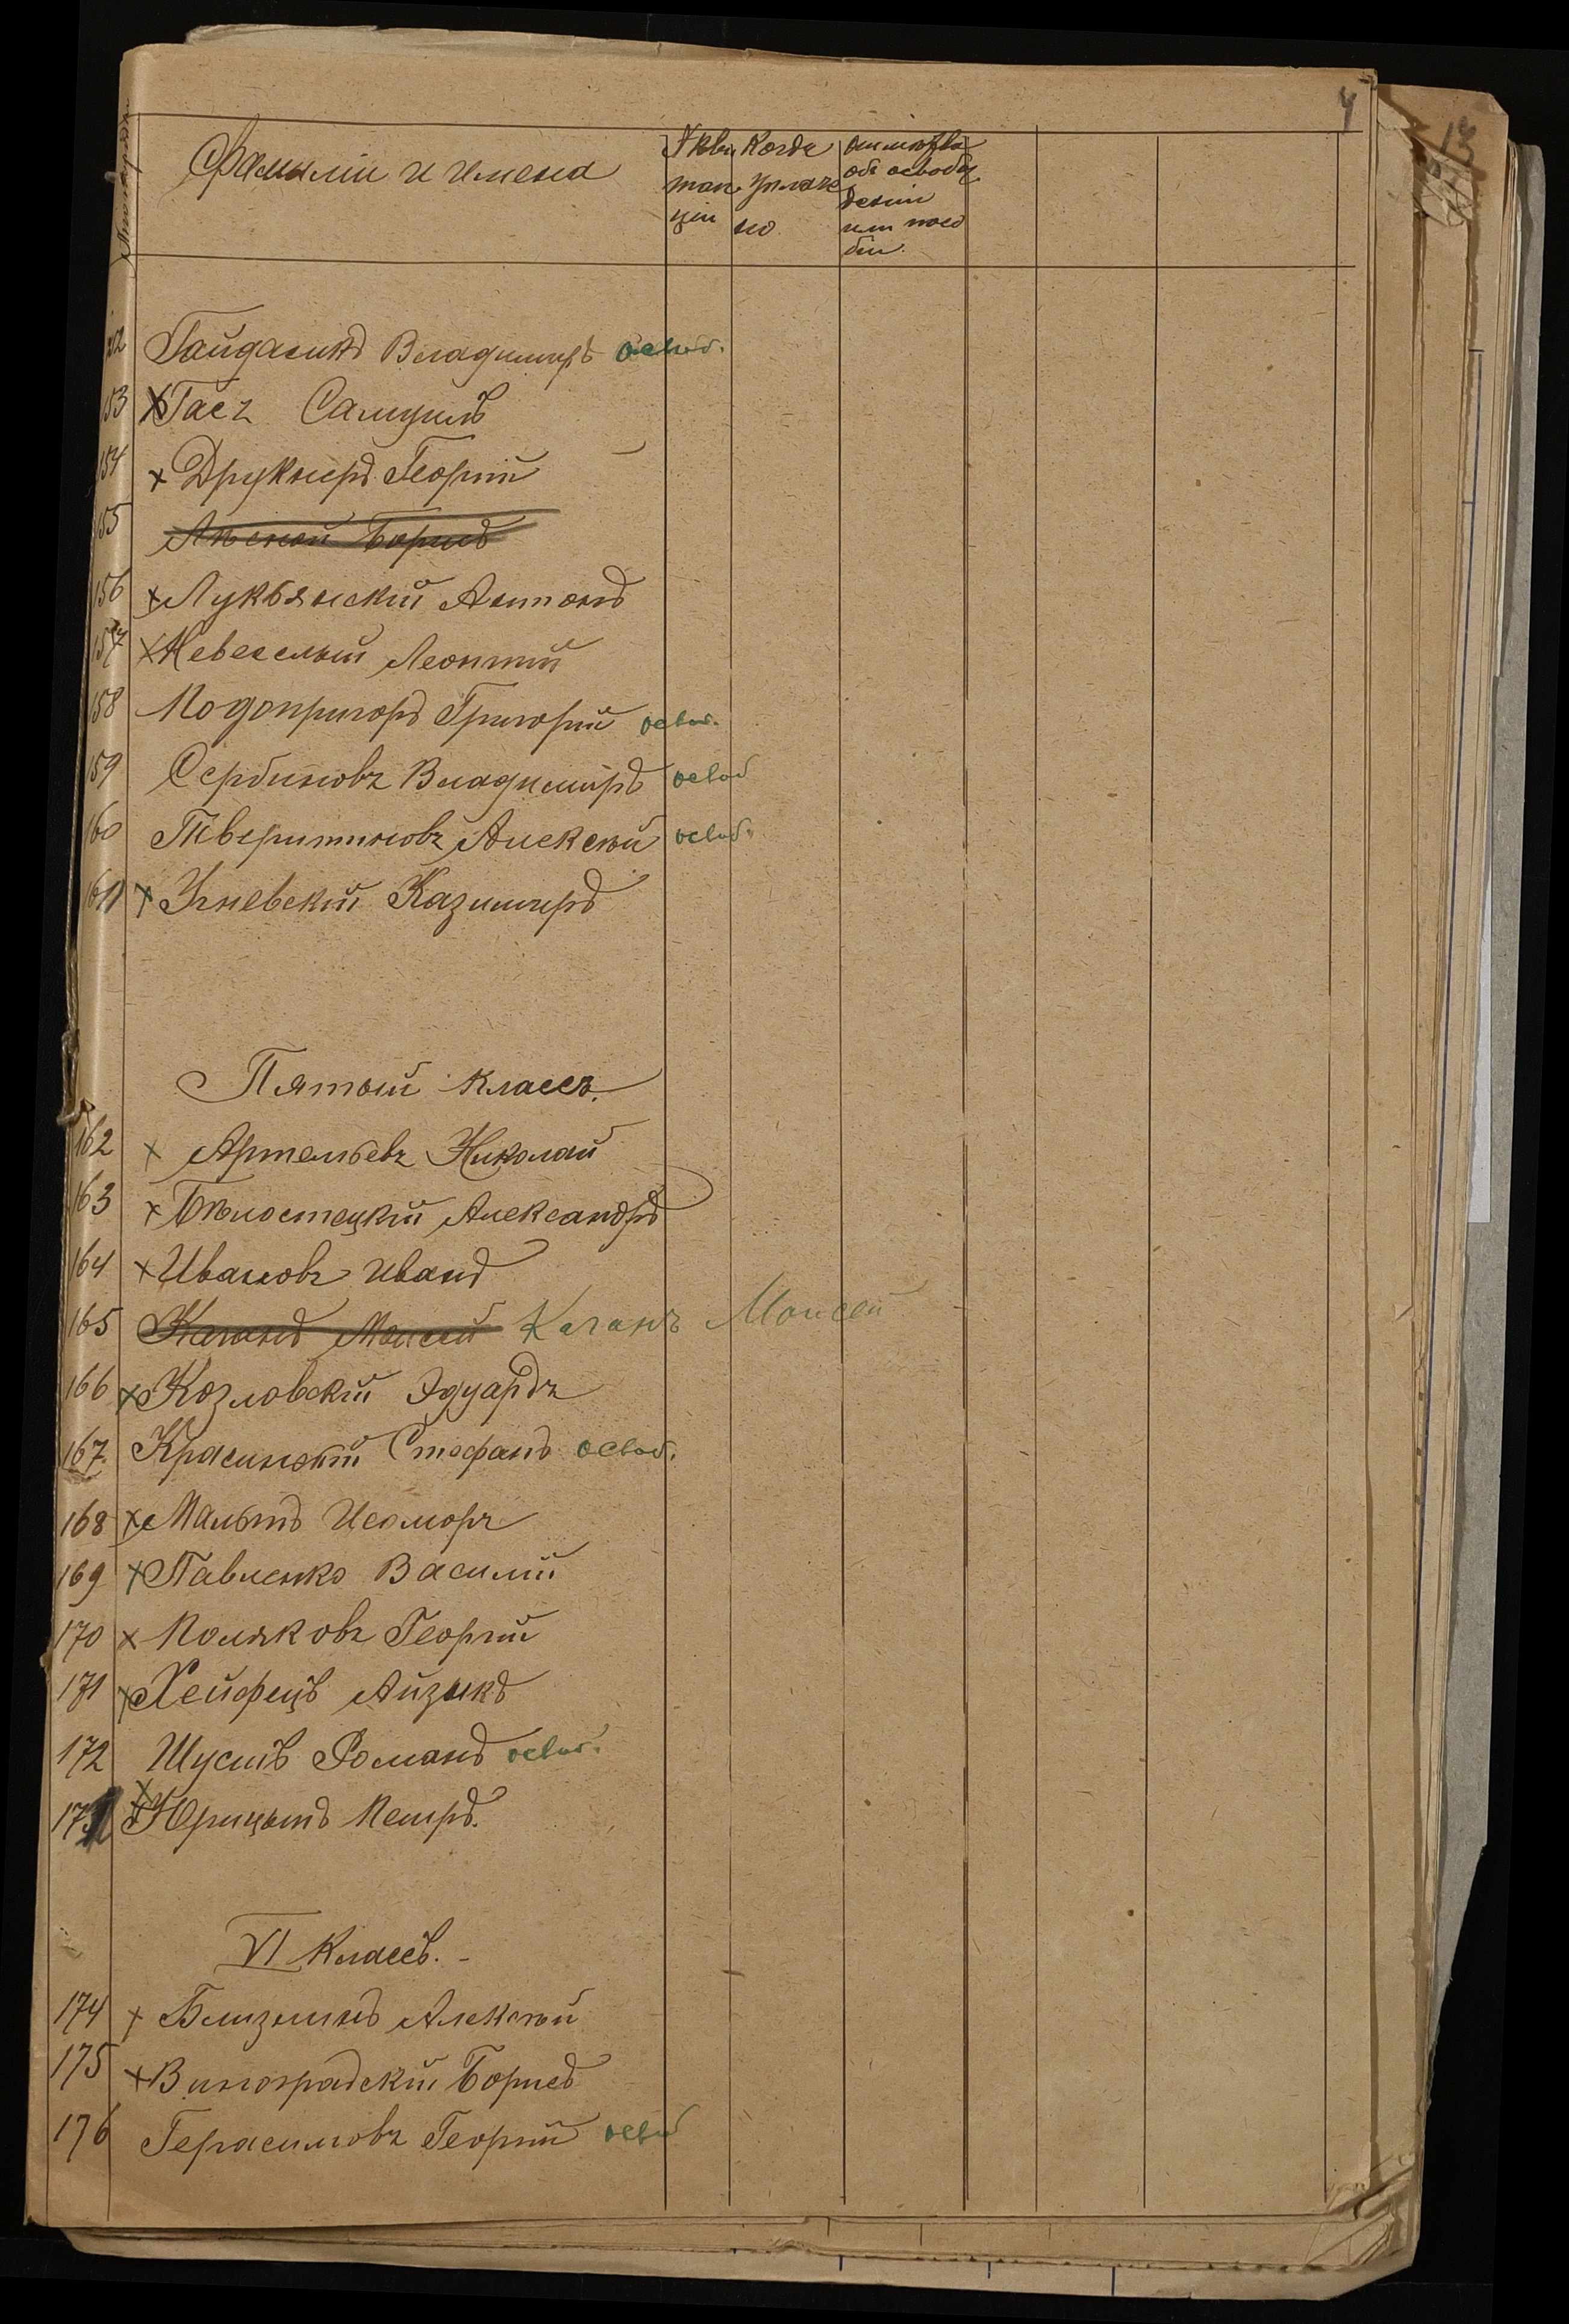 4
Фамиліи и имена
№ кви
тан
ціи
Когда
уплаче
но
отмѣтка
объ освобож
деніи
или пособ
біи.
152 Гайдасикъ Владимиръ освоб.
153 Гасъ Самуилъ
154 Друкеръ Георгій
155 Лѣсной Борисъ
156 Лукьянскій Антонъ
157 Невеселый Леонтій
158 Подопригоръ Григорій освоб.
159 Сербиновъ Владиміръ освоб
160 Тверитиновъ Алексѣй освоб.
161 Угневскій Казимиръ
Пятый классъ.
162 Артемьевъ Николай
163 Бѣлостоцкій Александръ
164 Ивановъ Иванъ
165 Каганъ Моисей Каганъ Моисей
166 Козловскій Эдуардъ
167. Красинскій Стефанъ освоб.
168 Мальтъ Исоморъ
169 Павленко Василій
170 Поляковъ Георгій
171 Хейфецъ Айзикъ
172 Шусть Романъ освоб.
173 Юрицынъ Петръ.
VI классъ. -
174 Близнинъ Алексѣй
175 Виноградскій Борисъ
176 Герасимовъ Георгій освоб